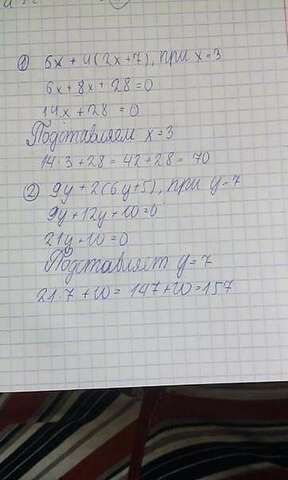 ① 6x + 4(2x+7), при x=3
6x + 8x + 28 = 0
14x + 28 = 0
Подставляем x = 3
14 · 3 + 28 = 42 + 28 = 70
② 9y + 2(6y+5), при y=7
9y + 12y + 10 = 0
21y + 10 = 0
Подставляет y = 7
21 · 7 + 10 = 147 + 10 = 157